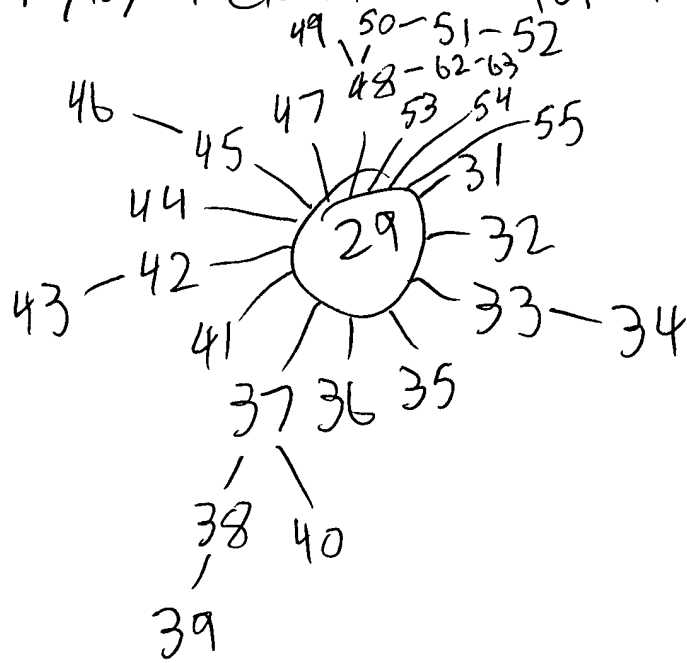 49 50 - 51 - 52
48 - 62 - 63
46 47 53 54 55
45 31
44 29 32
43 42 33 34
41
37 36 35
38 40
39